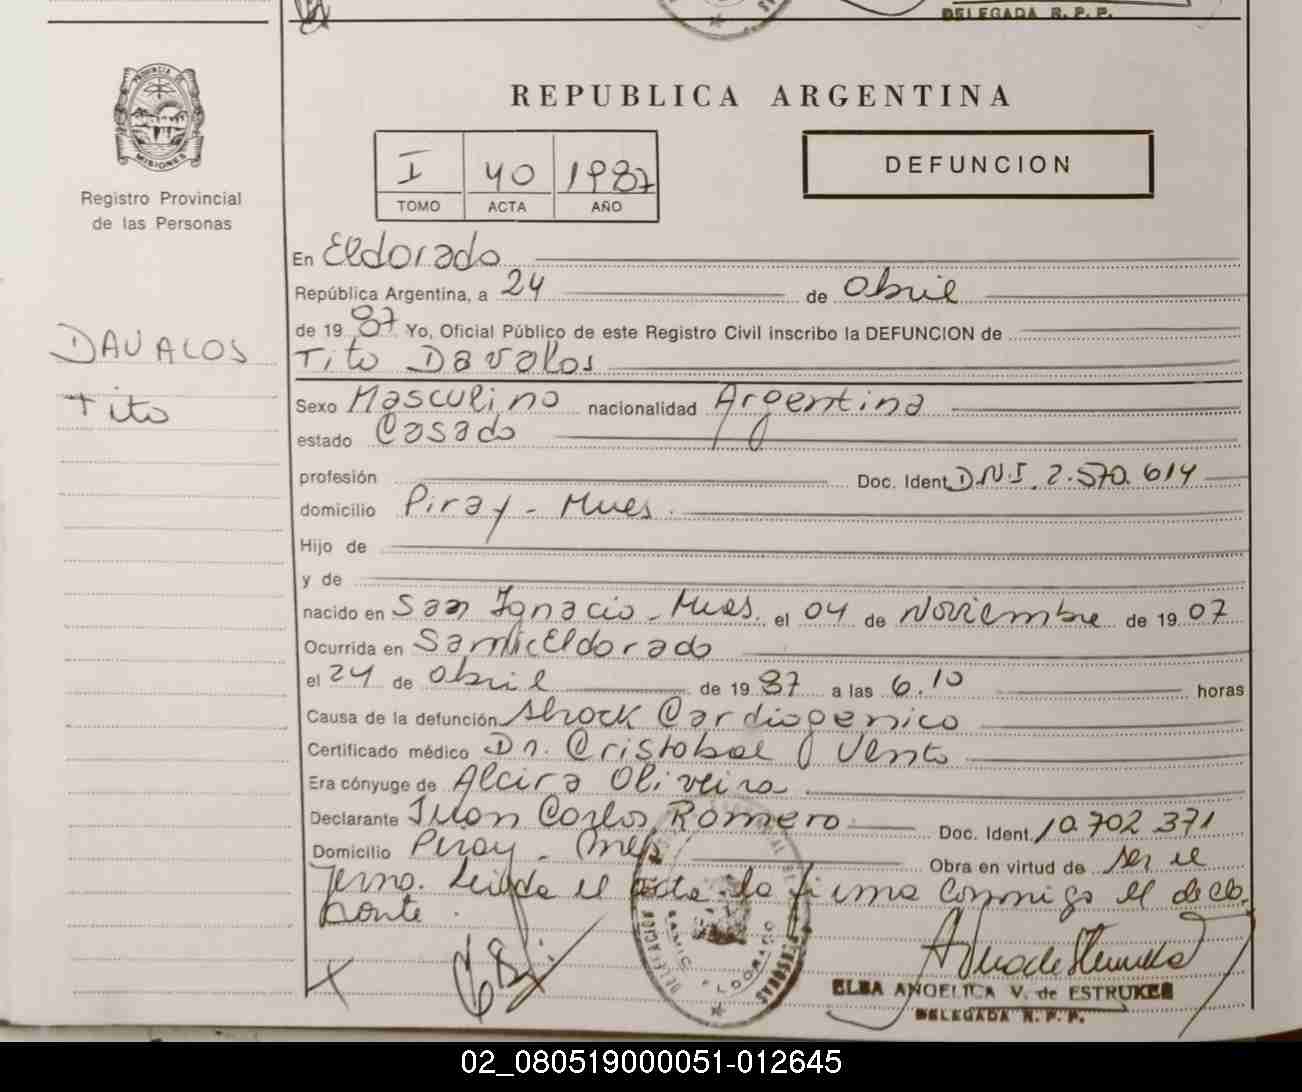 DELEGADA R. P. P.
PROVINCIA DE
MISIONES
Registro Provincial
de las Personas
REPUBLICA ARGENTINA
I 40 1987
TOMO ACTA AÑO
DEFUNCION
DAVALOS
Tito
En Eldorado
República Argentina, a 24 de abril
de 1987 Yo, Oficial Público de este Registro Civil inscribo la DEFUNCION de
Tito Davalos
Sexo Masculino nacionalidad Argentina
estado Casado
profesión Doc. Ident. D.N.I. 2.570.614
domicilio Piray - Mnes.
Hijo de
y de
nacido en San Ignacio - Mnes. el 04 de Noviembre de 1907
Ocurrida en Samic Eldorado
el 24 de abril de 1987 a las 6.10 horas
Causa de la defunción Shock Cardiogenico
Certificado médico Dr. Cristobal Vento
Era cónyuge de Alcira Oliveira
Declarante Juan Carlos Romero Doc. Ident. 10.702.371
Domicilio Piray - Mnes. Obra en virtud de ser el
Yerno. Leida el acta la firma conmigo el decla
rante.
SAMIC ELDORADO
ELBA ANGELICA V. de ESTRUKEN
DELEGADA R. P. P.
02_080519000051-012645